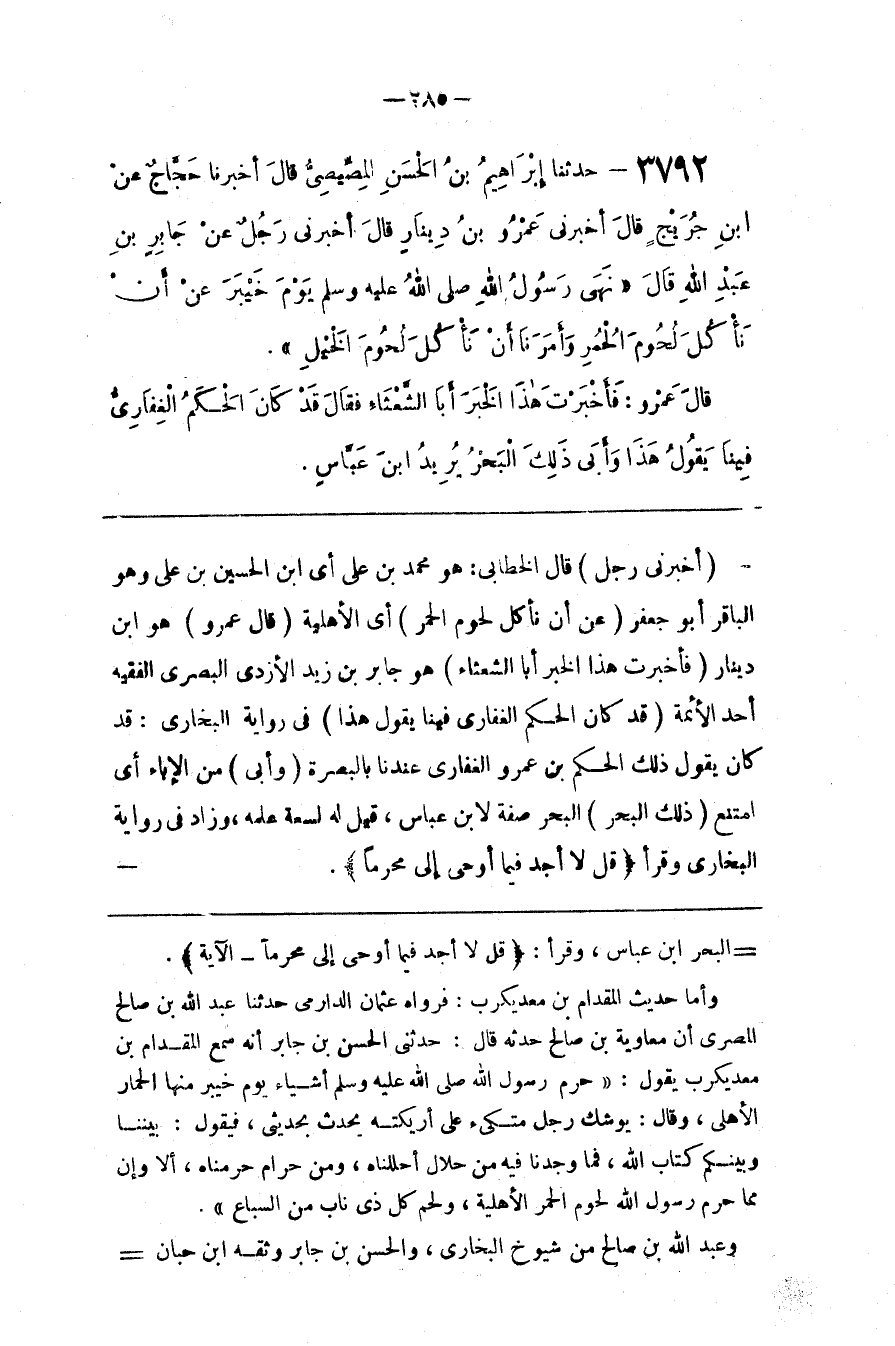 — ٢٨٥ —
٣٧٩٢ — حدثنا إِبْرَاهِيمُ بنُ الْحَسَنِ المِصِّيصِىُّ قالَ أخبرنا حَجَّاجٌ عنْ
ابنِ جُرَيْجٍ قالَ أخبرنى عَمْرُو بنُ دِينَارٍ قالَ أخبرنى رَجُلٌ عنْ جَابِرِ بنِ
عَبْدِ اللهِ قالَ « نَهَى رَسُولُ اللهِ صلى اللهُ عليه وسلم يَوْمَ خَيْبَرَ عنْ أَنْ
نَأْكُلَ لُحُومَ الْحُمُرِ وَأَمَرَنَا أَنْ نَأْكُلَ لُحُومَ الْخَيْلِ » .
قالَ عَمْرو : فَأَخْبَرْتُ هٰذَا الْخَبَرَ أَبَا الشَّعْثَاءِ فقالَ قَدْ كَانَ الْحَكَمُ الْغِفَارِىُّ
فِينَا يَقُولُ هَذَا وَأَبَى ذَلِكَ الْبَحْرُ يُرِيدُ ابنَ عَبَّاسٍ .
- ( أخبرنى رجل ) قال الخطابى : هو محمد بن على أى ابن الحسين بن على وهو
الباقر أبو جعفر ( عن أن نأكل لحوم الحمر ) أى الأهلية ( قال عمرو ) هو ابن
دينار ( فأخبرت هذا الخبر أبا الشعثاء ) هو جابر بن زيد الأزدى البصرى الفقيه
أحد الأئمة ( قد كان الحكم الغفارى فينا يقول هذا ) فى رواية البخارى : قد
كان يقول ذلك الحكم بن عمرو الغفارى عندنا بالبصرة ( وأبى ) من الإباء أى
امتنع ( ذلك البحر ) البحر صفة لابن عباس ، قيل له لسعة علمه ، وزاد فى رواية
البخارى وقرأ ﴿ قل لا أجد فيما أوحى إلى محرماً ﴾ . —
= البحر ابن عباس ، وقرأ : ﴿ قل لا أجد فيما أوحى إلى محرماً - الآية ﴾ .
وأما حديث المقدام بن معديكرب : فرواه عثمان الدارمى حدثنا عبد الله بن صالح
المصرى أن معاوية بن صالح حدثه قال : حدثنى الحسن بن جابر أنه سمع المقدام بن
معديكرب يقول : « حرم رسول الله صلى الله عليه وسلم أشياء يوم خيبر منها الحمار
الأهلى ، وقال : يوشك رجل متكىء على أريكته يحدث بحديثى ، فيقول : بيننا
وبينكم كتاب الله ، فما وجدنا فيه من حلال أحللناه ، ومن حرام حرمناه ، ألا وإن
مما حرم رسول الله لحوم الحمر الأهلية ، ولحم كل ذى ناب من السباع » .
وعبد الله بن صالح من شيوخ البخارى ، والحسن بن جابر وثقه ابن حبان =